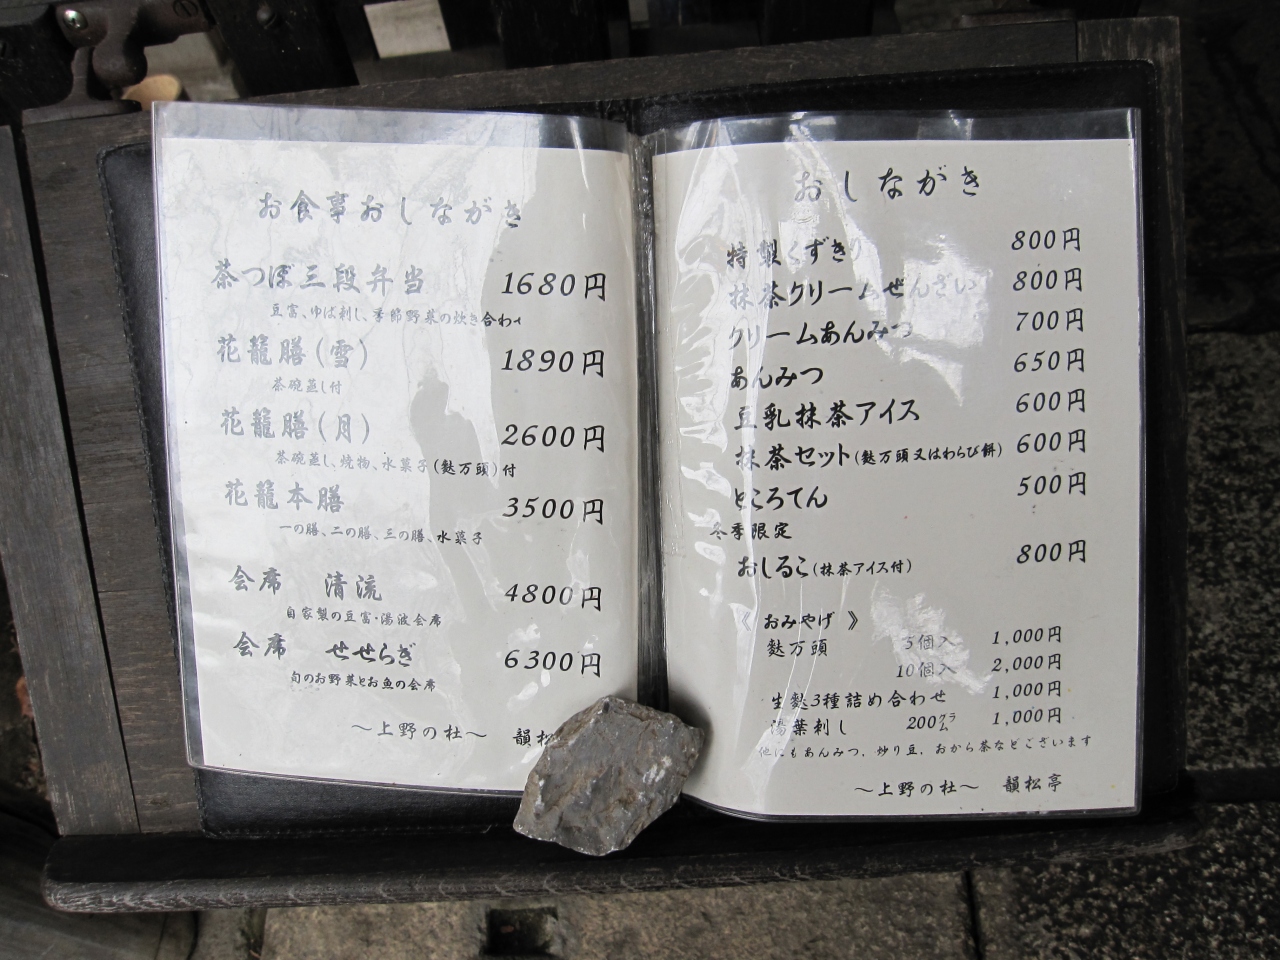 お食事おしながき
茶つぼ三段弁当 1680円
豆富、ゆば刺し、季節野菜の炊き合わ
花籠膳(雪) 1890円
茶碗蒸し付
花籠膳(月) 2600円
茶碗蒸し、焼物、水菓子(麩万頭)付
花籠本膳 3500円
一の膳、二の膳、三の膳、水菓子
会席 清流 4800円
自家製の豆富・湯波会席
会席 せせらぎ 6300円
旬のお野菜とお魚の会席
〜上野の杜〜 韻松
おしながき
特製くずきり 800円
抹茶クリームぜんざい 800円
クリームあんみつ 700円
あんみつ 650円
豆乳抹茶アイス 600円
抹茶セット(麩万頭又はわらび餅) 600円
ところてん 500円
冬季限定
おしるこ(抹茶アイス付) 800円
《おみやげ》
麩万頭 5個入 1,000円
10個入 2,000円
生麩3種詰め合わせ 1,000円
湯葉刺し 200グラム 1,000円
他にもあんみつ、炒り豆、おから茶などございます
〜上野の杜〜 韻松亭